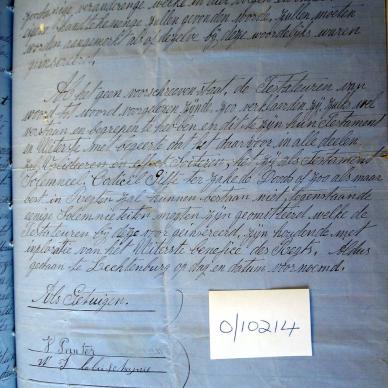 onder handteekening zullen gevonden worden, zullen moeten
worden aangemerkt als of dezelve bij deze woordelijks waren
geinsereert.
Al hetgeen voorschreeven staat, de Testateuren van
woord tot woord voorgelezen zijnde, zoo verklaarden zij zulx wel
verstaan en begrepen te hebben en dit te zijn hun Testament
en Uiterste wil begeerte dat het daarvoor in alle deelen
zal valideeren en effect sorteeren, het zij als Testament
Solemneel, Codicil, Gifte ter zake de Dood of zoo als maar
best in Regten zal kunnen bestaan niet tegenstaande
eenige Solemniteiten mogten zijn geomitteerd, welke de
Testateuren bij deze voor geinsereerd, zijn houdende met
imploratie van het Uiterste benefice des Regts. Aldus
gedaan te Lichtenburg op dag en datum voornoemd.
Als Getuigen.
0/10214